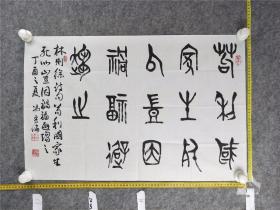 苟利國
家生死
以豈因
禍福避
趨之
林则徐诗句苟利國家生
死以豈因禍福避趨之
丁酉之夏